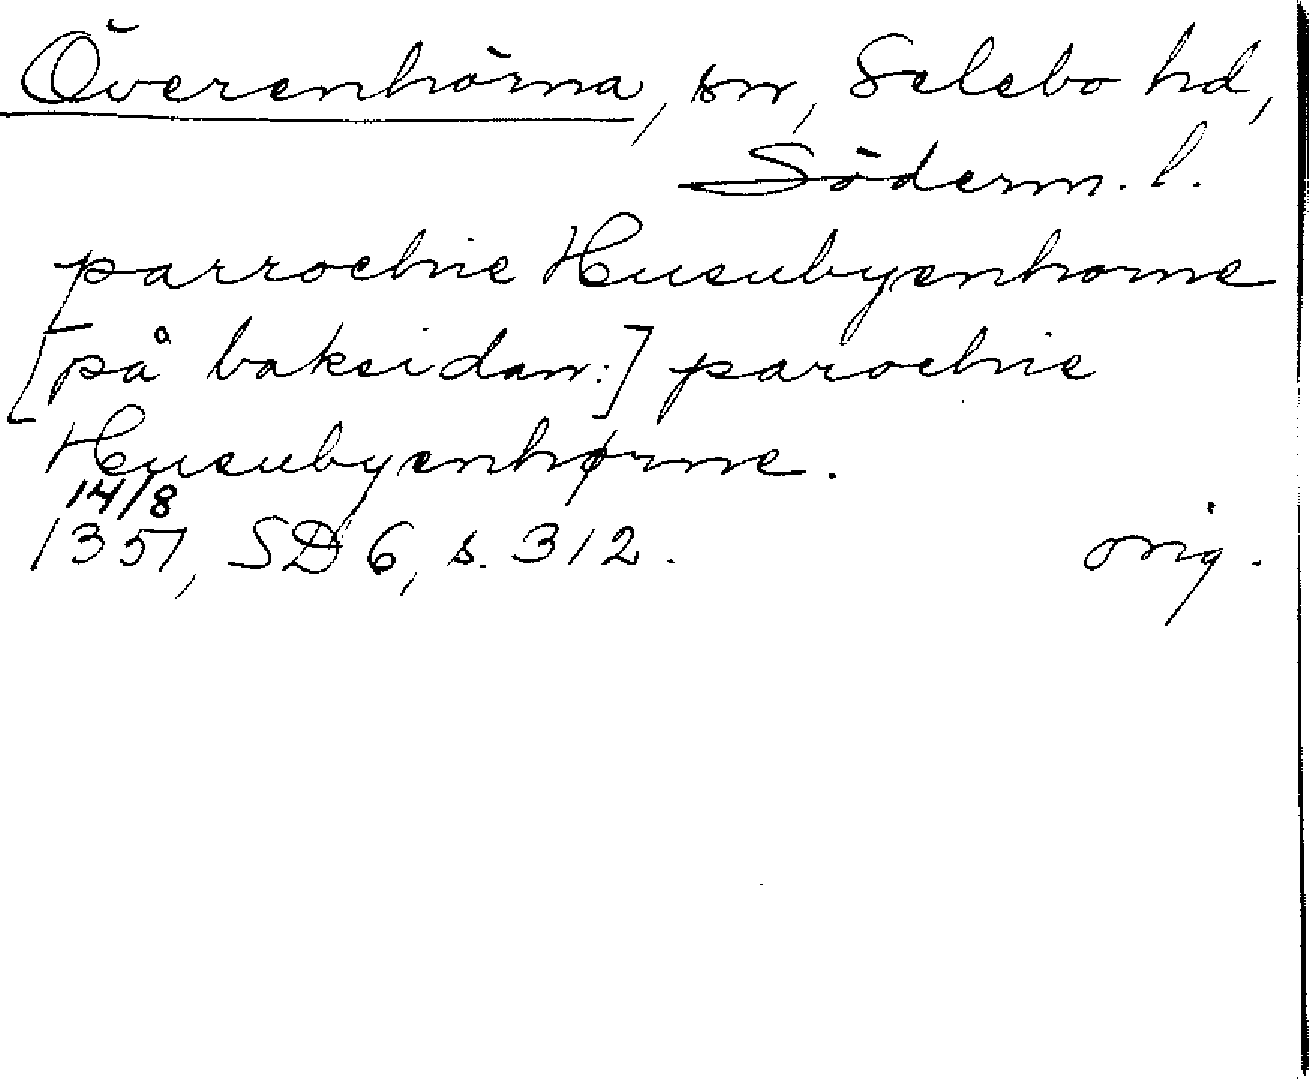 Överenhörna, sn, Selebo hd,
Söderm. l.
parrochie Husubyenhorne
[på baksidan:] parochie
Husubyenhørne.
14/8
1351, SD 6, s. 312. orig.